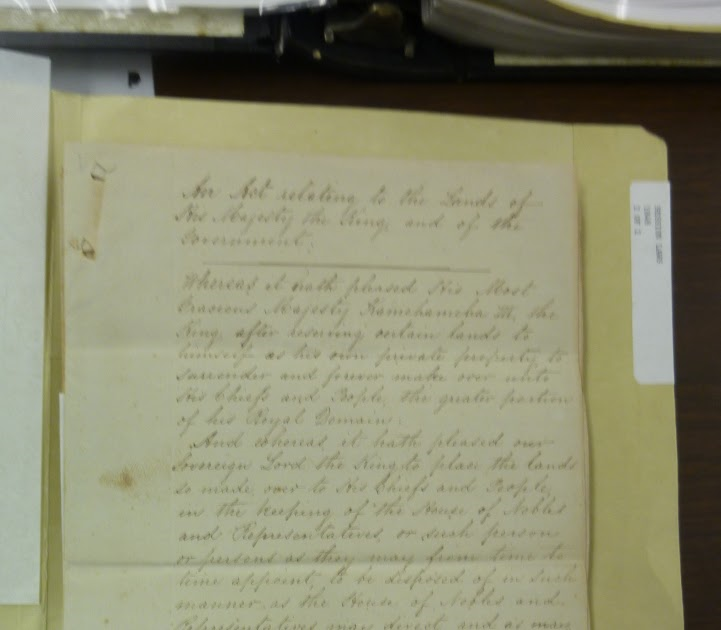 An Act relating to the Lands of
His Majesty the King, and of the
Government.
Whereas it hath pleased His Most
Gracious Majesty Kamehameha III, the
King, after reserving certain lands to
himself as his own private property, to
surrender and forever make over unto
His Chiefs and People, the greater portion
of his Royal Domain.
And whereas, it hath pleased our
Sovereign Lord the King, to place the lands
so made over to His Chiefs and People,
in the keeping of the House of Nobles
and Representatives, or such person
or persons as they may from time to
time appoint, to be disposed of in such
manner, as the House of Nobles and
Representatives may direct and as may
SESSION LAWS
2 OF 2